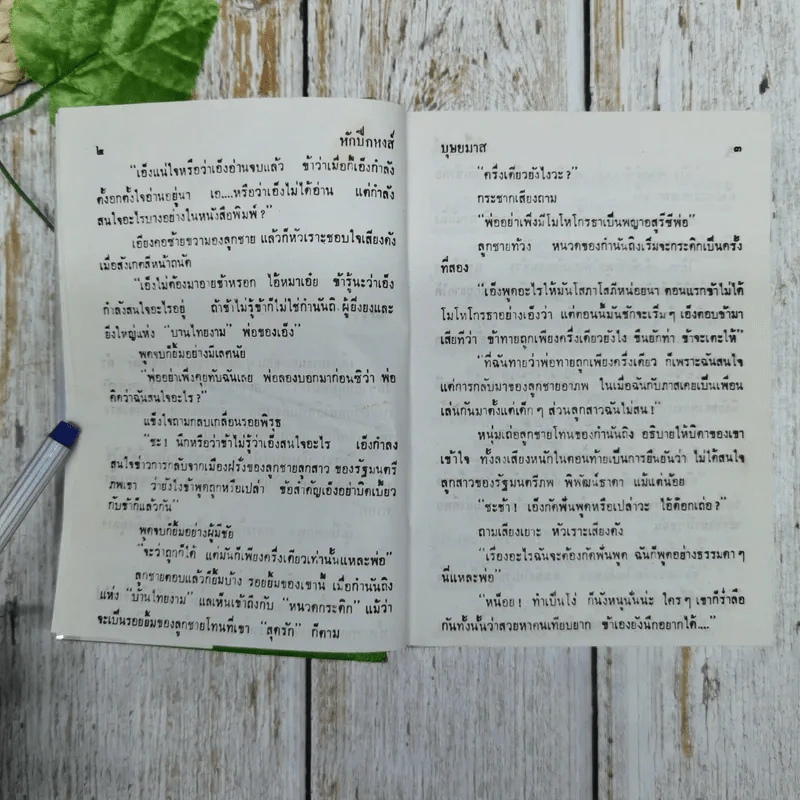 ๒ หักปีกหงส์
“เอ็งแน่ใจหรือว่าเอ็งอ่านจบแล้ว ข้าว่าเมื่อกี้เอ็งกำลัง
ตั้งอกตั้งใจอ่านอยู่นา เอ....หรือว่าเอ็งไม่ได้อ่าน แต่กำลัง
สนใจอะไรบางอย่างในหนังสือพิมพ์?”
เอียงคอซ้ายขวามองลูกชาย แล้วก็หัวเราะชอบใจเสียงดัง
เมื่อสังเกตสีหน้าถนัด
“เอ็งไม่ต้องมาอายข้าหรอก ไอ้หมาเอ๋ย ข้ารู้นะว่าเอ็ง
กำลังสนใจอะไรอยู่ ถ้าข้าไม่รู้ข้าก็ไม่ใช่กำนันถิ ผู้ยิ่งยงและ
ยิ่งใหญ่แห่ง “บานไทยงาม” พ่อของเอ็ง”
พูดจบก็ยิ้มอย่างมีเลศนัย
“พ่ออย่าเพิ่งคุยทับฉันเลย พ่อลองบอกมาก่อนซิว่า พ่อ
คิดว่าฉันสนใจอะไร?”
แข็งใจถามกลบเกลื่อนรอยพิรุธ
“ชะ! นึกหรือว่าข้าไม่รู้ว่าเอ็งสนใจอะไร เอ็งกำลัง
สนใจข่าวการกลับจากเมืองฝรั่งของลูกชายลูกสาว ของรัฐมนตรี
ภพเขา ว่ายังไงข้าพูดถูกหรือเปล่า ข้อสำคัญเอ็งอย่าบิดเบี้ยว
กับข้าก็แล้วกัน”
พูดจบก็ยิ้มอย่างผู้มีชัย
“จะว่าถูกก็ได้ แต่มันก็เพียงครึ่งเดียวเท่านั้นแหละพ่อ”
ลูกชายตอบแล้วก็ยิ้มบ้าง รอยยิ้มของเขานี้ เมื่อกำนันถิง
แห่ง “บ้านไทยงาม” แลเห็นเข้าถึงกับ “หนวดกระดิก” แม้ว่า
จะเป็นรอยยิ้มของลูกชายโทนที่เขา “สุดรัก” ก็ตาม
บุษยมาส ๓
“ครึ่งเดียวยังไงวะ?”
กระชากเสียงถาม
“พ่ออย่าเพิ่งมีโมโหโกรธาเป็นพญาอสุรีซีพ่อ”
ลูกชายท้วง หนวดของกำนันถิงเริ่มจะกระดิกเป็นครั้ง
ที่สอง
“เอ็งพูดอะไรให้มันโสภาโสภีหน่อยนา ตอนแรกข้าไม่ได้
โมโหโกรธาอย่างเอ็งว่า แต่ตอนนี้มันชักจะเริ่มๆ เอ็งตอบข้ามา
เสียทีว่า ข้าทายถูกเพียงครึ่งเดียวยังไง ขืนยักท่า ข้าจะเตะให้”
“ที่ฉันทายว่าพ่อทายถูกเพียงครึ่งเดียว ก็เพราะฉันสนใจ
แต่การกลับมาของลูกชายอาภพ ในเมื่อฉันกับภาสเคยเป็นเพื่อน
เล่นกันมาตั้งแต่เด็กๆ ส่วนลูกสาวฉันไม่สน!”
หนุ่มเถ่อลูกชายโทนของกำนันถิง อธิบายให้บิดาของเขา
เข้าใจ ทั้งลงเสียงหนักในตอนท้ายเป็นการยืนยันว่า ไม่ได้สนใจ
ลูกสาวของรัฐมนตรีภพ พิพัฒน์ธาดา แม้แต่น้อย
“ชะช้า! เอ็งกัดฟันพูดหรือเปล่าวะ ไอ้ด๊อกเถ่อ?”
ถามเสียงเยาะ หัวเราะเสียงดัง
“เรื่องอะไรฉันจะต้องกัดฟันพูด ฉันก็พูดอย่างธรรมดาๆ
นี่แหละพ่อ”
“หน็อย! ทำเป็นโง่ ก็นังหนูนั่นน่ะ ใครๆ เขาก็ร่ำลือ
กันทั้งนั้นว่าสวยหาคนเทียบยาก ข้าเองยังนึกอยากได้....”